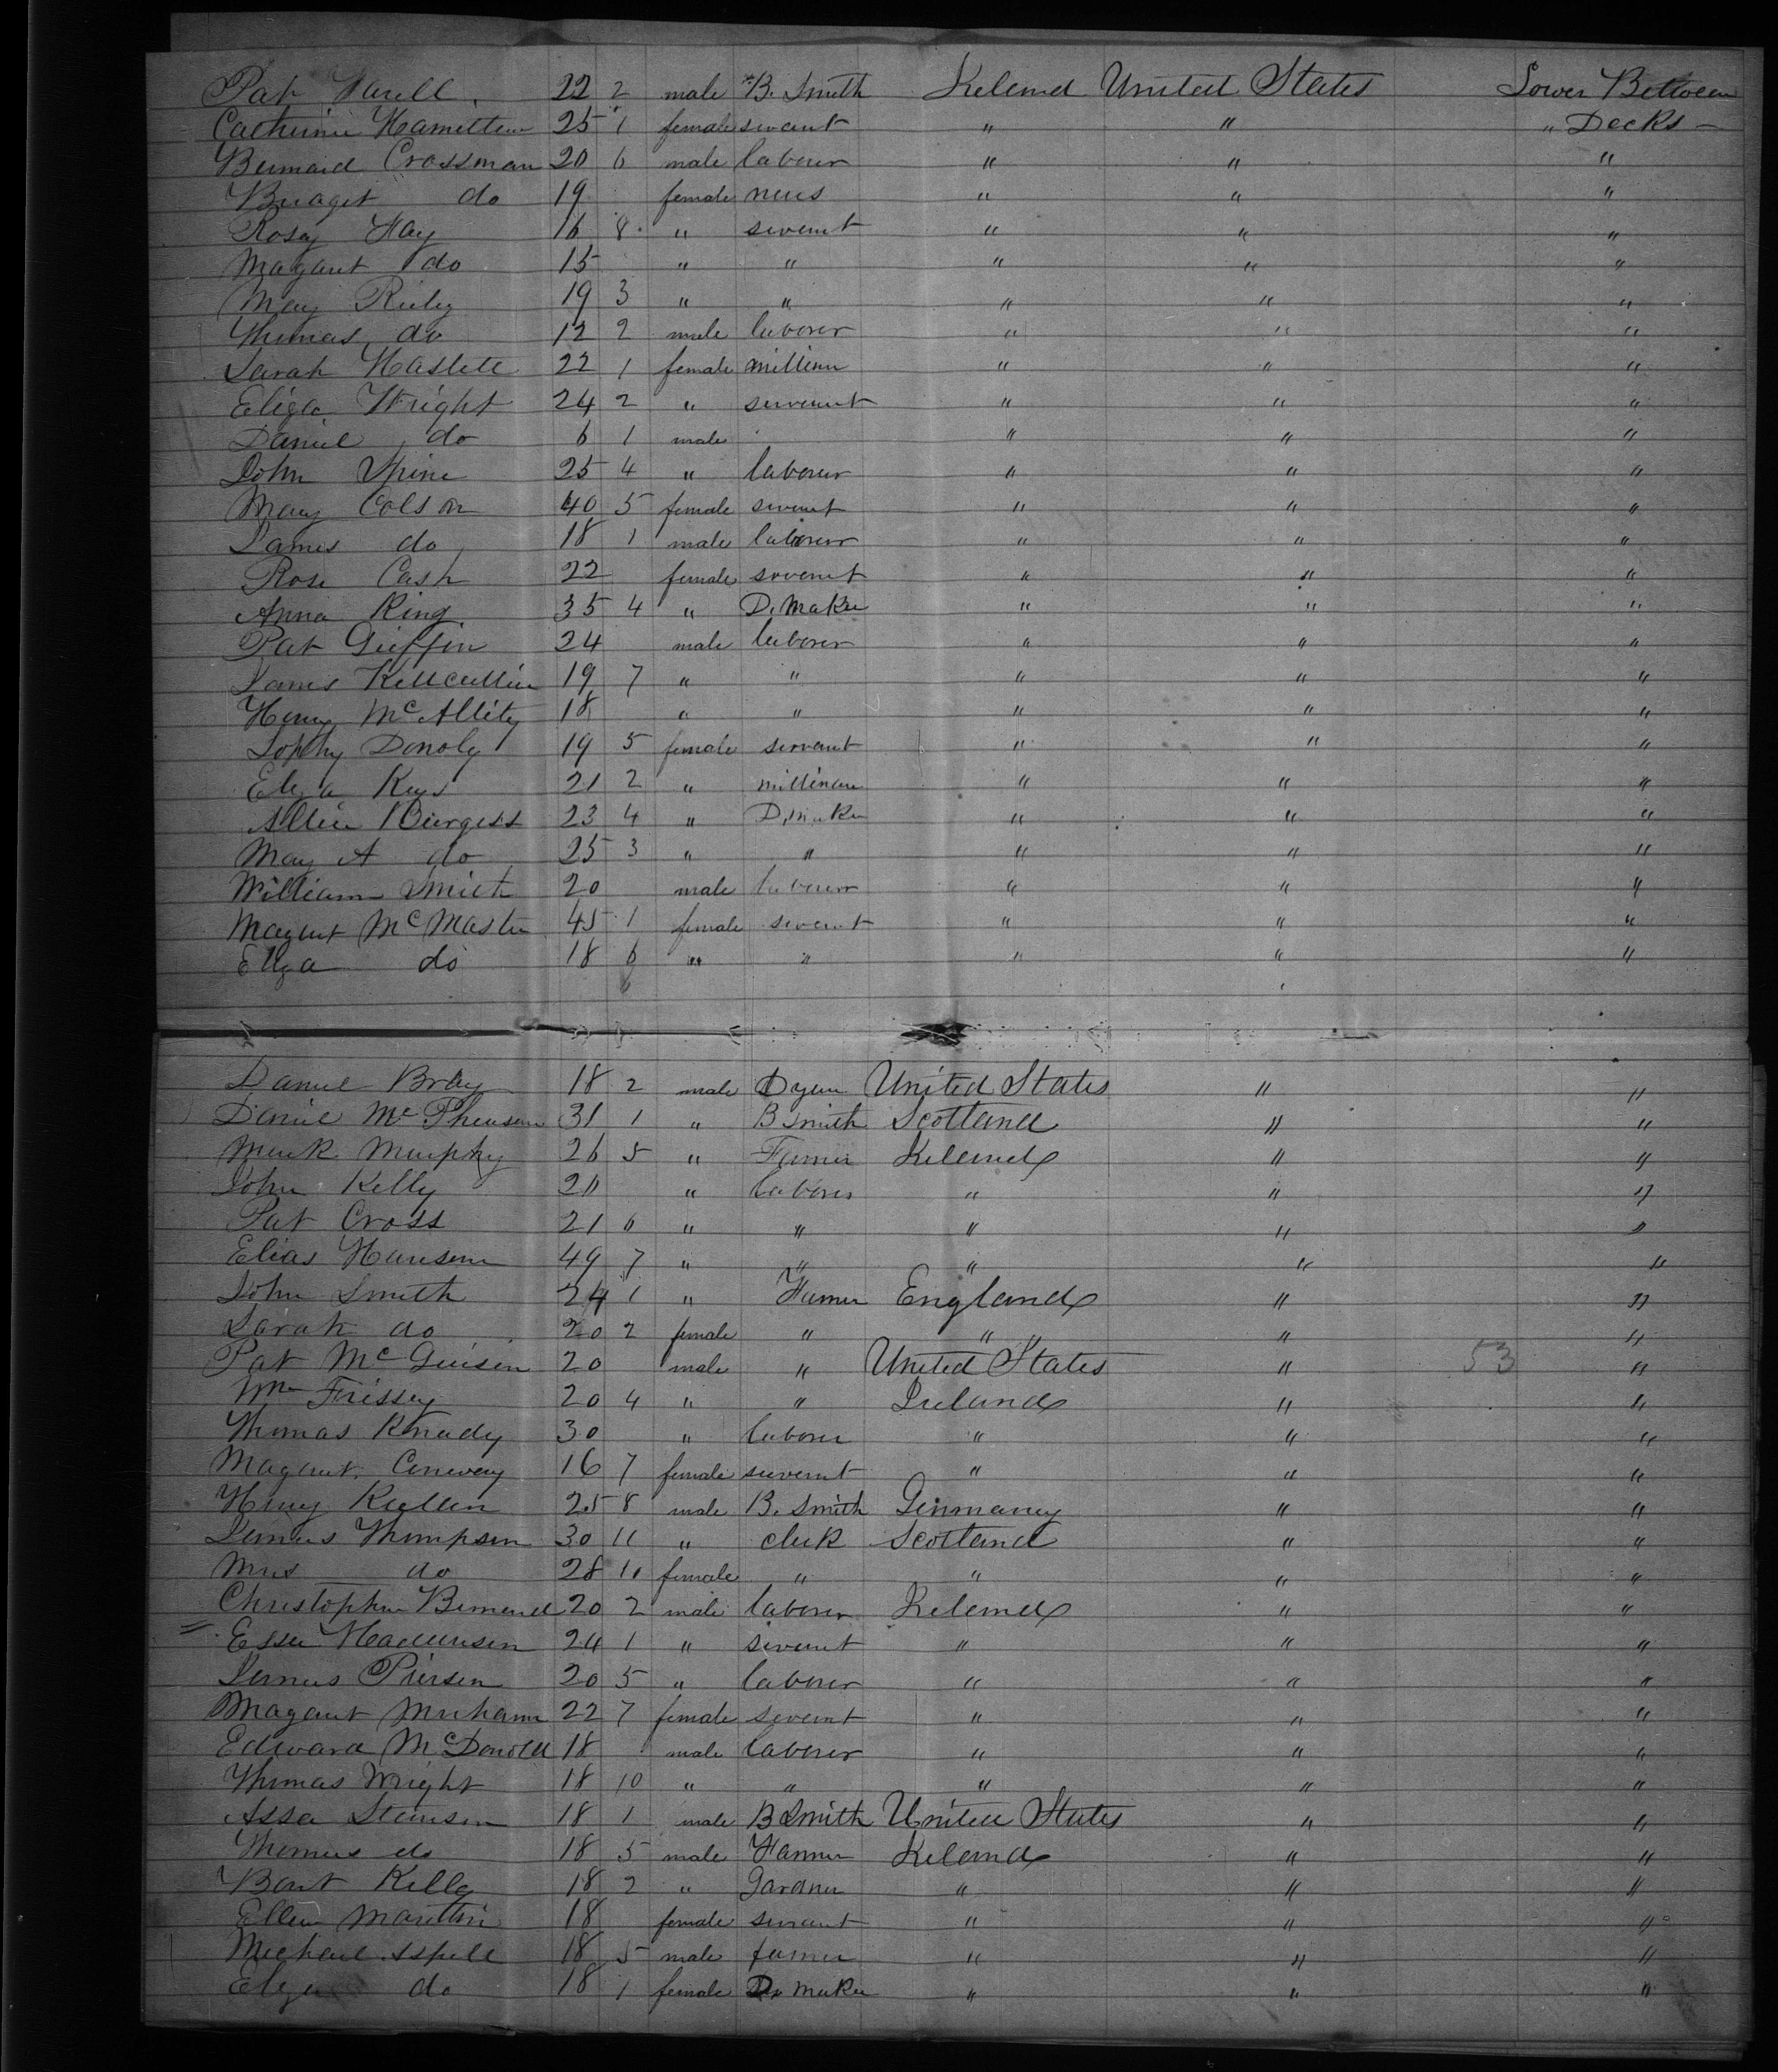 Pat Harell 22 2 male B. Smith Ireland United States Lower Between
Catherine Hamilton 25 1 female servant " " " Decks
Bernard Crossman 20 6 male laborer " " "
Bridget do 19 female " " "
Rosey Hay 16 8 " servant " " "
Magaret do 15 " " " " "
Mary Riely 19 3 " " " " "
Thomas do 12 2 male laborer " " "
Sarah Haslete 22 1 female milliner " " "
Eliza Wright 24 2 " servant " " "
Daniel do 6 1 male " " "
John Spine 25 4 " laborer " " "
Mary Colson 40 5 female servant " " "
James do 18 1 male laborer " " "
Rose Cash 22 female servant " " "
Anna King 35 4 " D. Maker " " "
Pat Griffin 24 male laborer " " "
James Killcullin 19 7 " " " " "
Henry McAllity 18 " " " " "
Sophy Donoly 19 5 female servant " " "
Eliza Keys 21 2 " milliner " " "
Allen Burgess 23 4 " D. Maker " " "
Mary A do 25 3 " " " " "
William Smith 20 male laborer " " "
Magaret McMaster 45 1 female servant " " "
Eliza do 18 6 " " " " "
Daniel Bray 18 2 male Dyer United States " "
Daniel McPherson 31 1 " B Smith Scotland " "
Mark Murphy 26 5 " Farmer Ireland " "
John Kelly 20 " laborer " " "
Pat Cross 21 6 " " " " "
Elias Hanson 49 7 " " " " "
John Smith 24 1 " Farmer England " "
Sarah do 20 2 female " " " "
Pat McGuisen 20 male " United States " 53 "
Wm Frissey 20 4 " " Ireland " "
Thomas Knady 30 " laborer " " "
Magaret Conway 16 7 female servant " " "
Henry Kullen 25 8 male B. Smith Germany " "
James Thompson 30 11 " clerk Scotland " "
Mrs do 28 10 female " " " "
Christopher Bernard 20 2 male laborer Ireland " "
24 1 " servant " " "
James Pierson 20 5 " laborer " " "
Magaret 22 7 female servant " " "
Edward McDonold 18 male laborer " " "
Thomas Wright 18 10 " " " " "
Assa Stanson 18 1 male B Smith United States " "
Thomas do 18 5 male Farmer Ireland " "
Bart Kelly 18 2 " Gardner " " "
Ellen Martin 18 female servant " " "
Michael 18 5 male farmer " " "
Eliza do 18 1 female D. Maker " " "